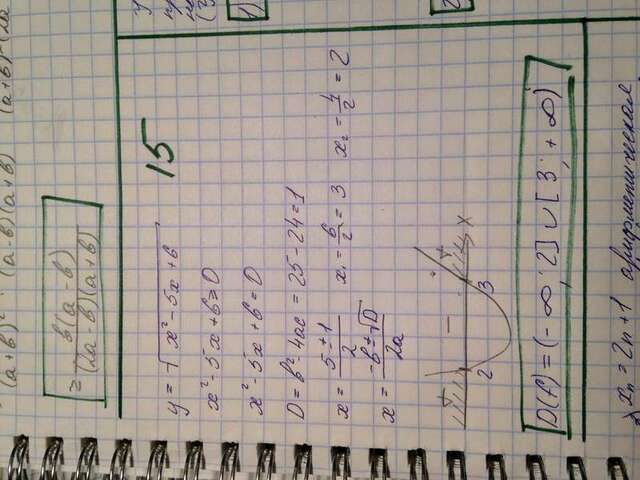 (a+b)² : (a-b)(a+b) (a+b)-(2a
= b(a-b) / (2a-b)(a+b)
15
y = √x²-5x+6
x²-5x+6≥0
x²-5x+6=0
D=b²-4ac = 25-24=1
x = 5±1 / 2 x₁ = 6/2 = 3 x₂ = 4/2 = 2
x = -b±√D / 2a
+ − + x
2 3
D(f)=(-∞; 2]∪[3; +∞)
xₙ = 2n+1 арифметическая